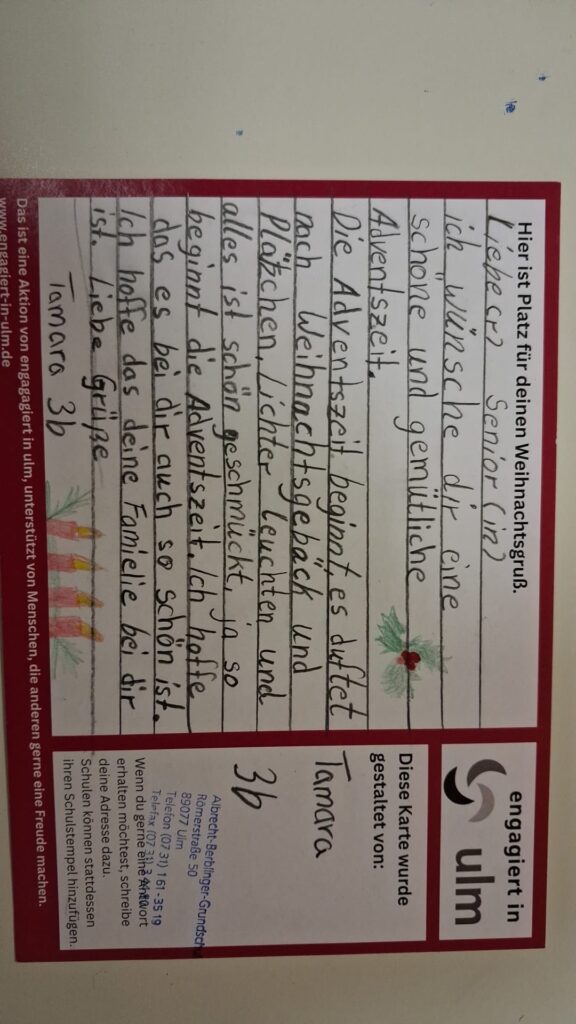 Hier ist Platz für deinen Weihnachtsgruß.
Liebe(r) Senior(in)
ich wünsche dir eine
schöne und gemütliche
Adventszeit.
Die Adventszeit beginnt, es duftet
nach Weihnachtsgebäck und
Plätzchen, Lichter leuchten und
alles ist schön geschmückt, ja so
beginnt die Adventszeit. Ich hoffe
das es bei dir auch so schön ist.
Ich hoffe das deine Familie bei dir
ist. Liebe Grüße
Tamara 3b
engagiert in
ulm
Diese Karte wurde
gestaltet von:
Tamara
3b
Albrecht-Berblinger-Grundschu
Römerstraße 50
89077 Ulm
Telefon (07 31) 1 61-35 19
Telefax (07 31)
Wenn du gerne eine Antwort
erhalten möchtest, schreibe
deine Adresse dazu.
Schulen können stattdessen
ihren Schulstempel hinzufügen.
Das ist eine Aktion von engagiert in ulm, unterstützt von Menschen, die anderen gerne eine Freude machen.
www.engagiert-in-ulm.de